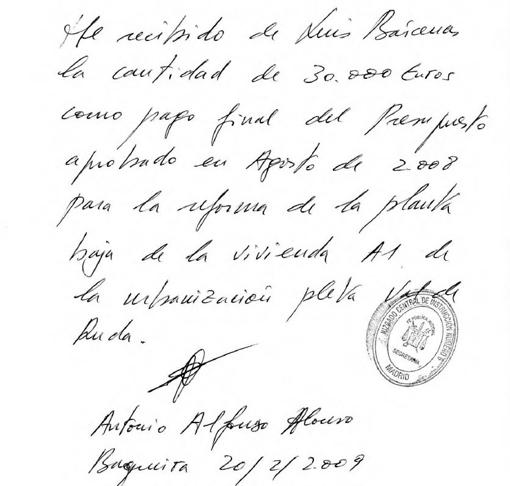 He recibido de Luis Bárcenas
la cantidad de 30.000 Euros
como pago final del Presupuesto
aprobado en Agosto de 2008
para la reforma de la planta
baja de la vivienda A1 de
la urbanización pleta Val de
Ruda.
JUZGADO CENTRAL DE INSTRUCCIÓN NÚMERO 5
SECRETARIA
MADRID
Antonio Alfonso Alonso
Baqueira 20/2/2009